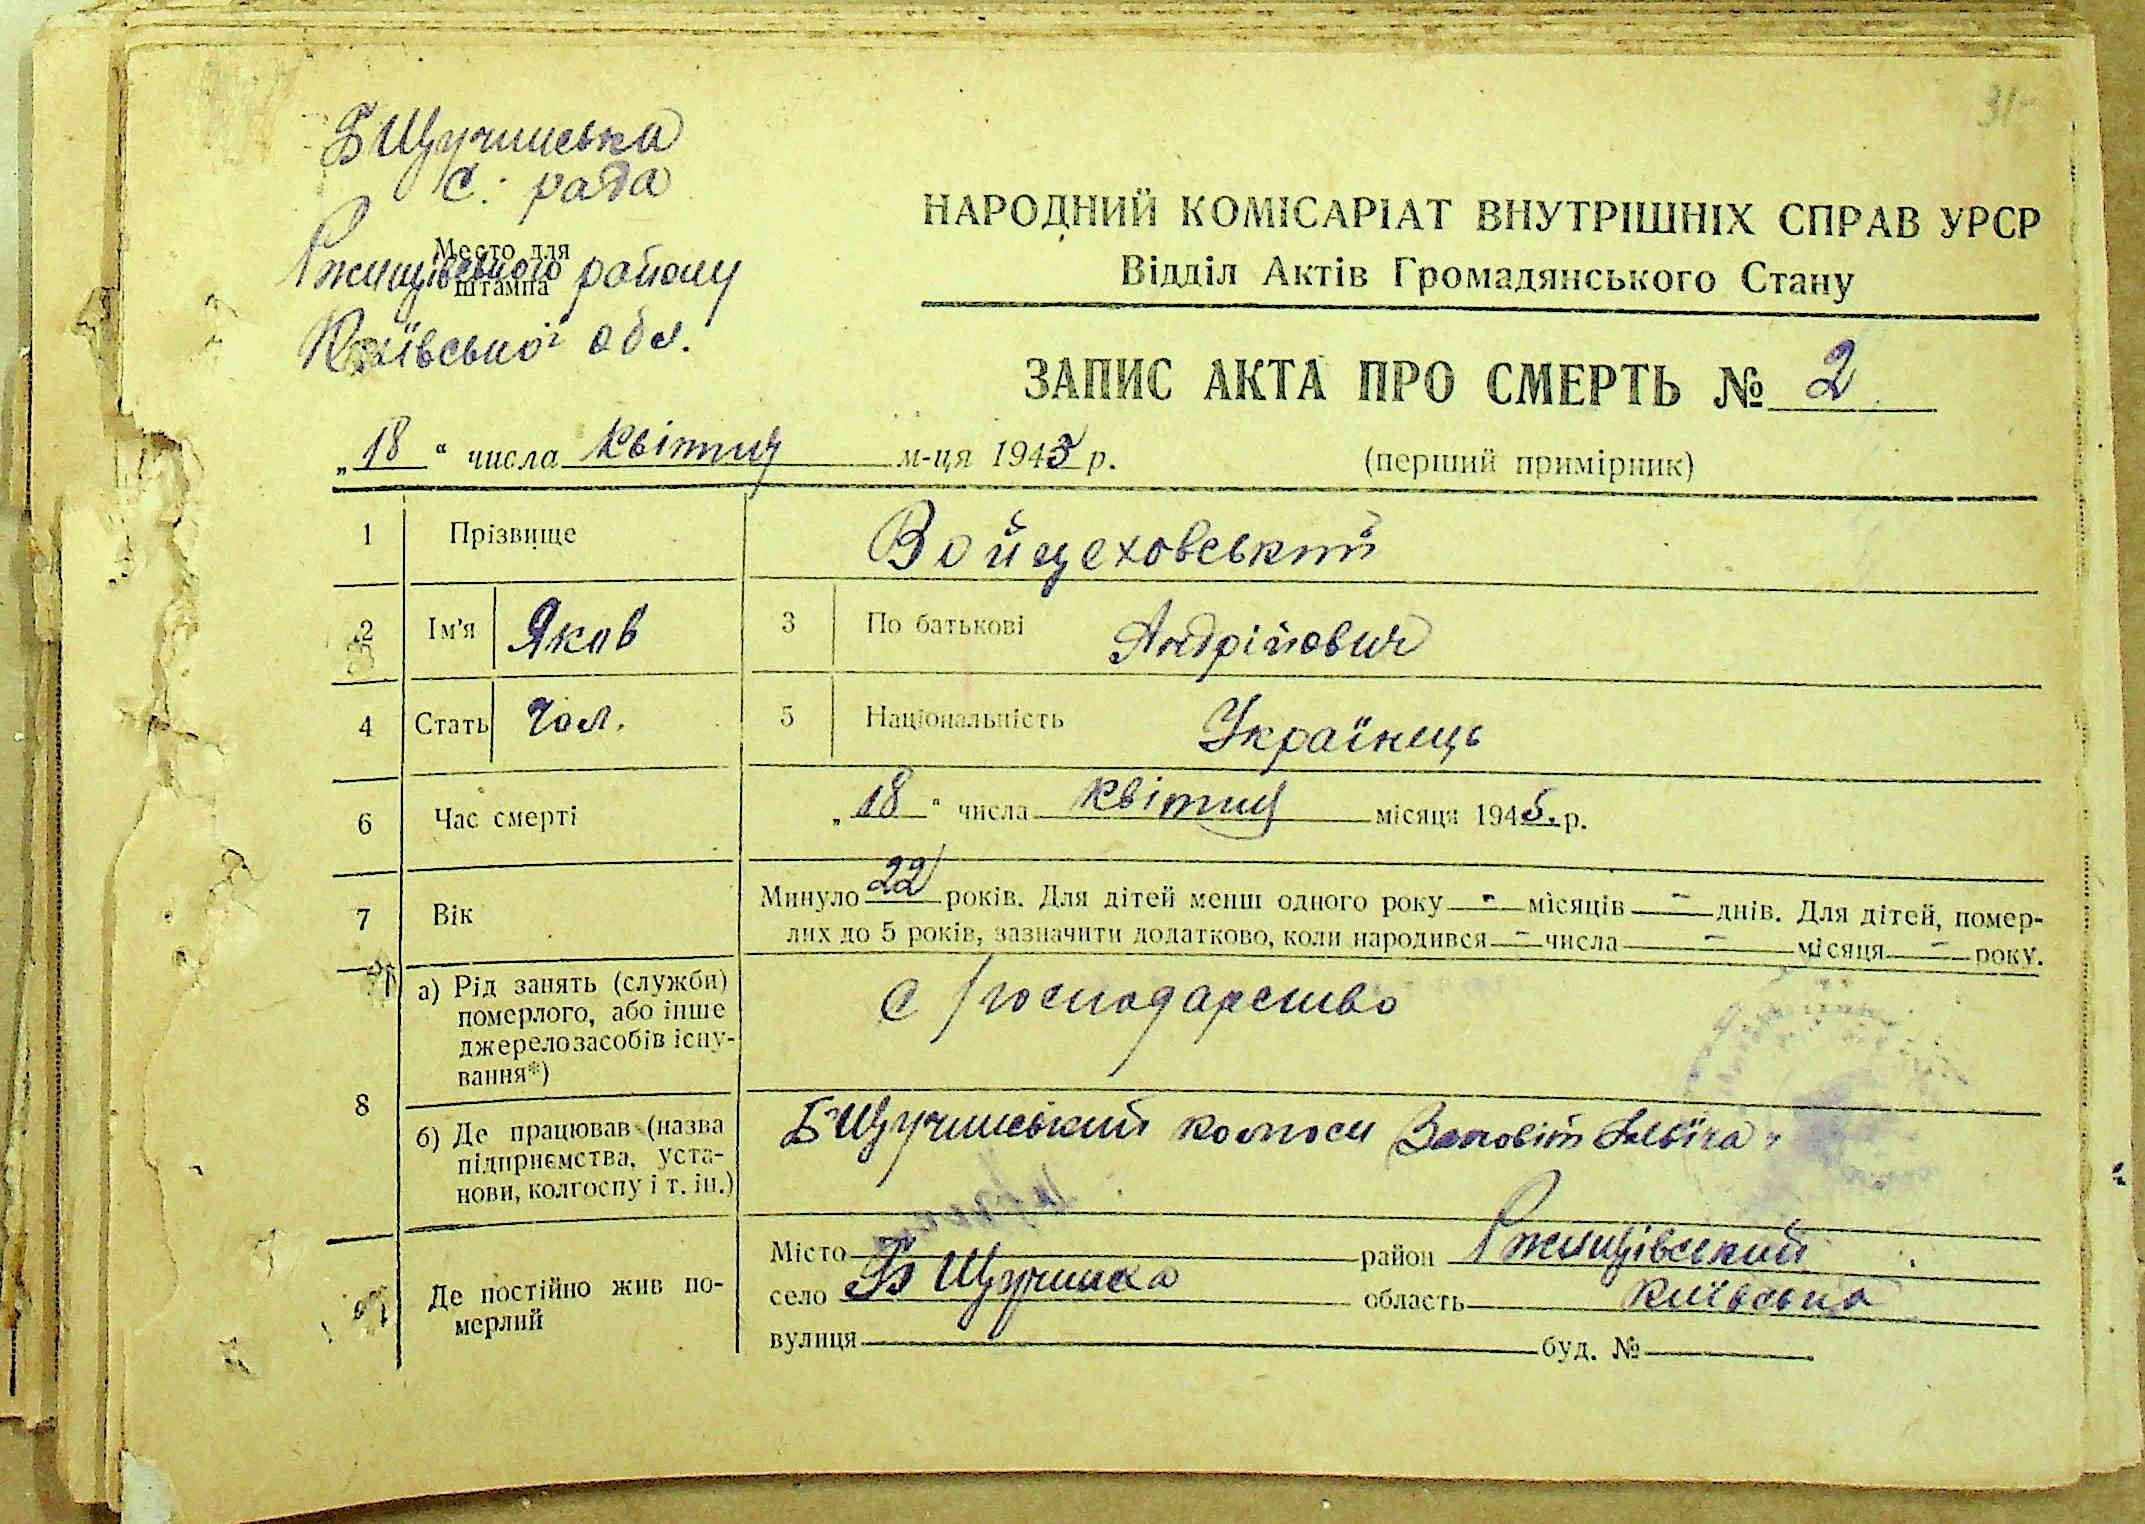 31
Б Щучинська
с. рада
Место для
штампа
Ржищівського району
Київської обл.
НАРОДНИЙ КОМІСАРІАТ ВНУТРІШНІХ СПРАВ УРСР
Відділ Актів Громадянського Стану
ЗАПИС АКТА ПРО СМЕРТЬ № 2
„18“ числа квітня м-ця 1945 р.
(перший примірник)
1 Прізвище Войцеховський
2 Ім'я Яков 3 По батькові Андрійович
4 Стать Чол. 5 Національність Українець
6 Час смерті „18“ числа квітня місяця 1945. р.
7 Вік Минуло 22 років. Для дітей менш одного року - місяців - днів. Для дітей, помер-
лих до 5 років, зазначити додатково, коли народився - числа - місяця - року.
8 а) Рід занять (служби)
померлого, або інше
джерело засобів існу-
вання*)
С/господарство
б) Де працював (назва
підприємства, уста-
нови, колгоспу і т. ін.)
Б Щучинський колгосп Заповіт Ілліча
Де постійно жив по-
мерлий
Місто район Ржищівський
село Б Щучинка область Київська
вулиця буд. №